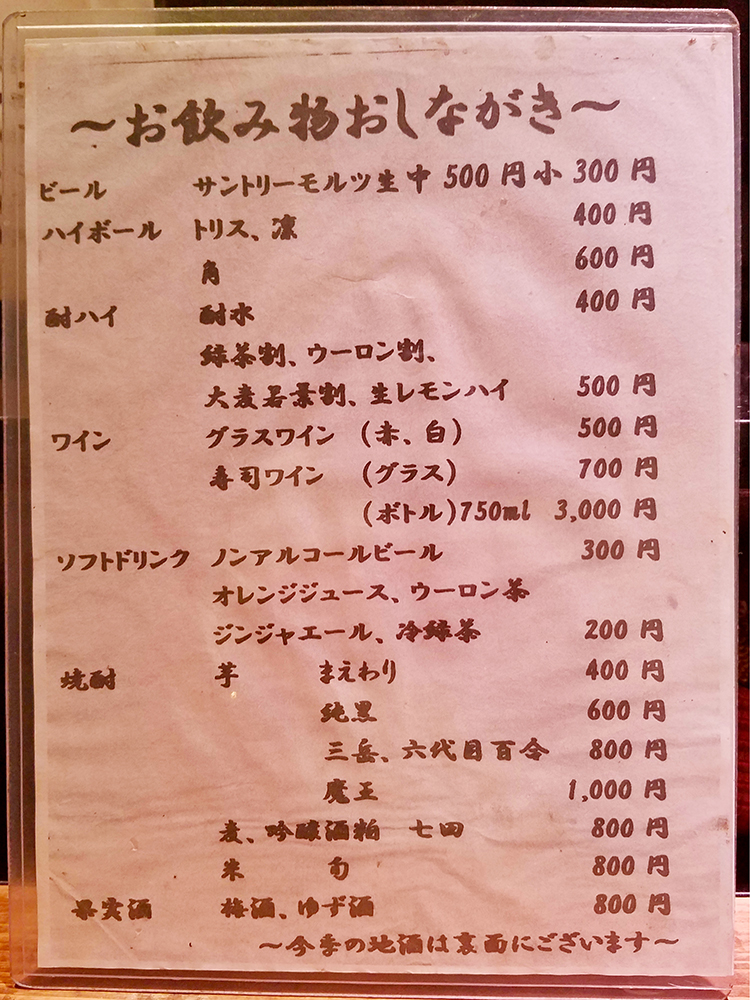 ～お飲み物おしながき～
ビール サントリーモルツ生 中 500 円 小 300 円
ハイボール トリス、凛 400 円
角 600 円
酎ハイ 酎水 400 円
緑茶割、ウーロン割、
大麦若葉割、生レモンハイ 500 円
ワイン グラスワイン (赤、白) 500 円
寿司ワイン (グラス) 700 円
(ボトル)750ml 3,000 円
ソフトドリンク ノンアルコールビール 300 円
オレンジジュース、ウーロン茶
ジンジャエール、冷緑茶 200 円
焼酎 芋 まえわり 400 円
純黒 600 円
三岳、六代目百合 800 円
魔王 1,000 円
麦、吟醸酒粕 七田 800 円
米 旬 800 円
果実酒 梅酒、ゆず酒 800 円
～今季の地酒は裏面にございます～